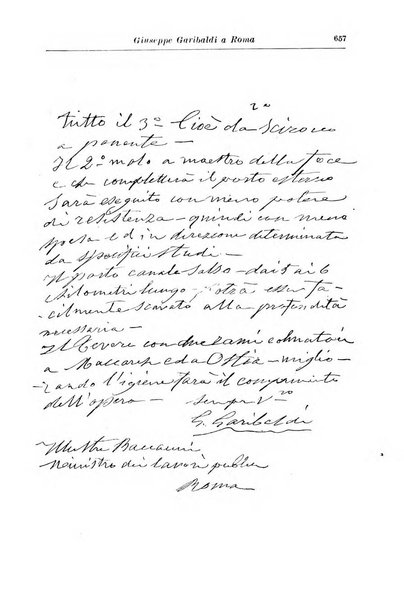 Giuseppe Garibaldi a Roma 657
2o
tutto il 3o Cioè da Scirocco
a ponente —
Il 2o molo a maestro della foce
e che completterà il porto esterno
Sarà eseguito con meno potere
di resistenza — quindi con meno
spesa ed in direzione determinata
da specifici studi —
Il porto canale Salso — dai 5 ai 6
Kilometri lungo potrà esser fa-
cilmente scavato alla profondità
necessaria —
Il Tevere con due rami colmatori
a Maccarese ed a Ostia — miglio-
rando l'igiene farà il compimento
dell'opera — sempre Vro
G. Garibaldi
Illustre Baccarini
Ministro dei lavori publici
Roma